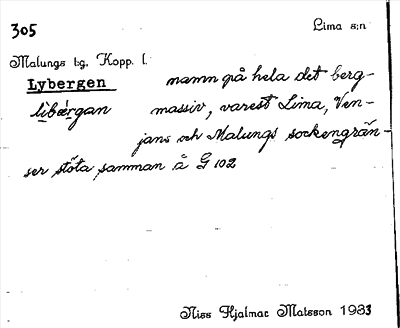 305
Lima s:n
Malungs tg. Kopp. l.
Lybergen namn på hela det berg-
lìbǽrgan massiv, varest Lima, Ven-
jans och Malungs sockengrän-
ser stöta samman å G 102
Niss Hjalmar Matsson 1933